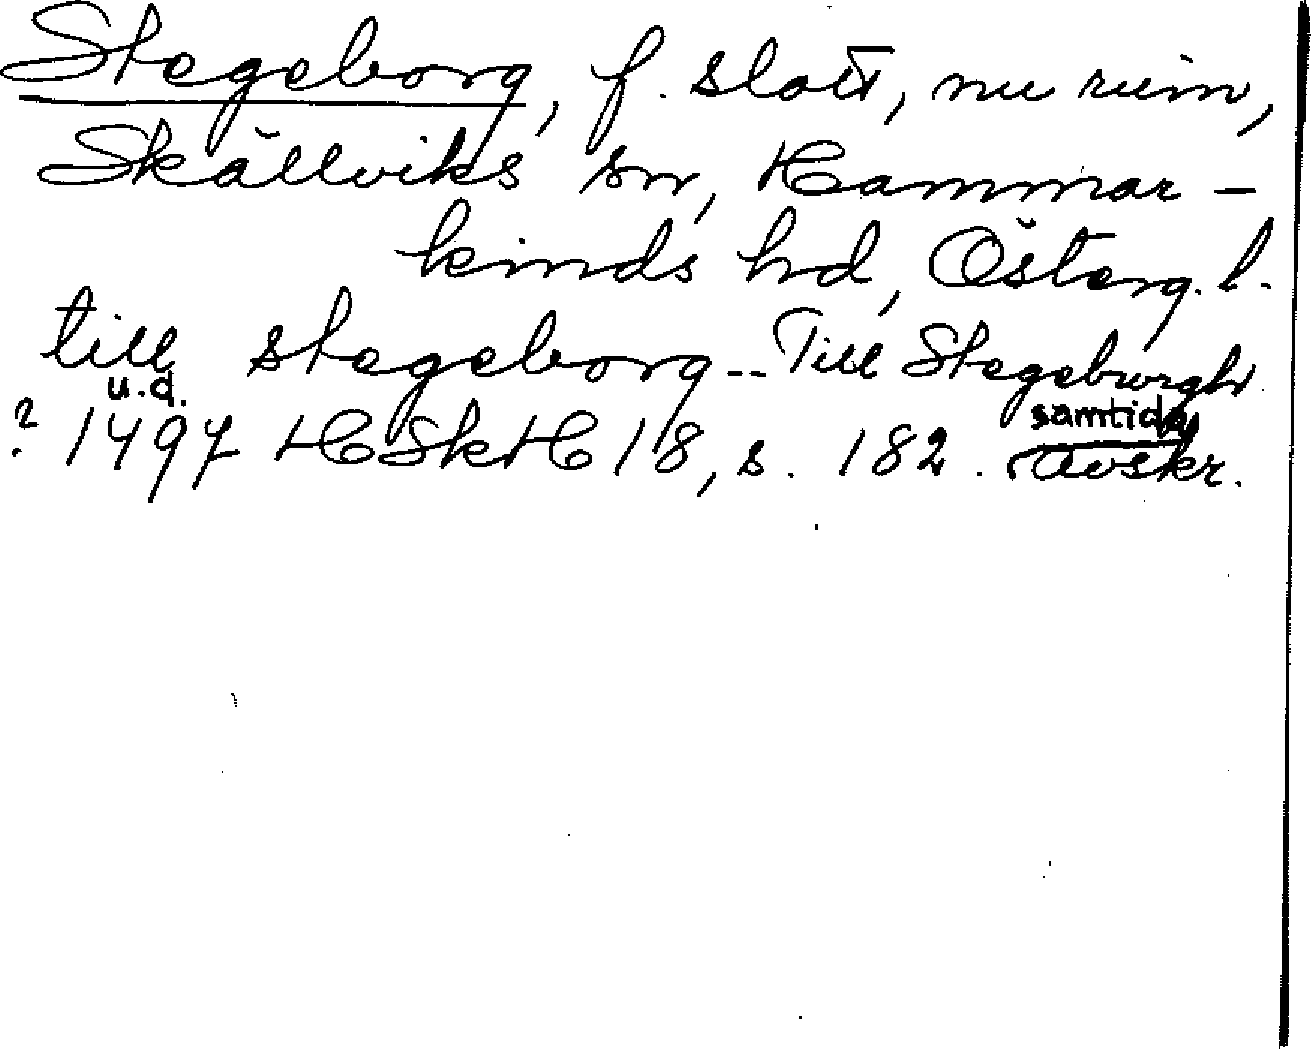 Stegeborg, f. slott, nu ruin,
Skällviks sn, Hammar-
kinds hd, Österg. l.
till stegeborg -- Till Stegeburgh
u.d.
? 1497 HSkH 18, s. 182. samtida
avskr.